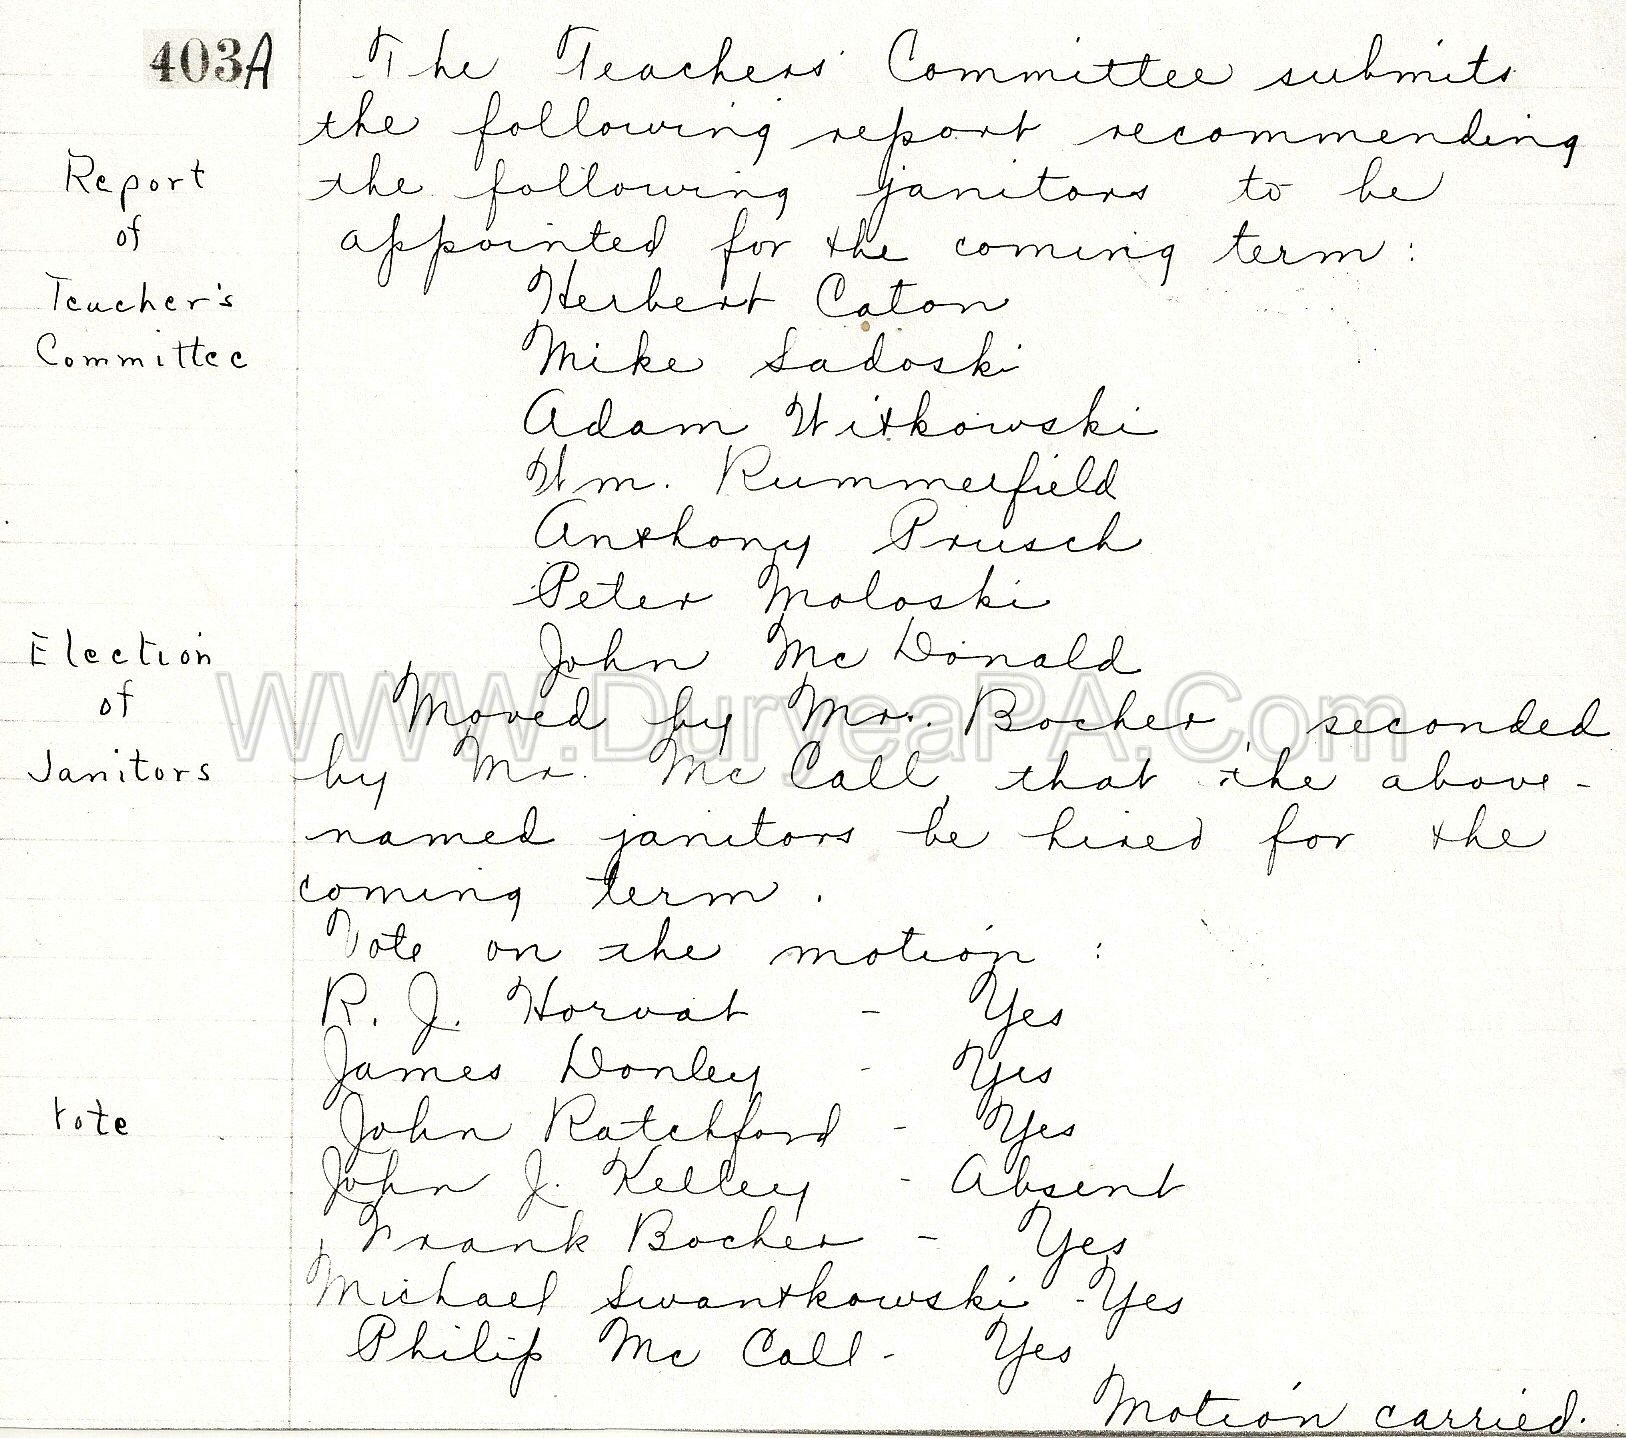 403A
The Teachers' Committee submits
the following report recommending
Report
the following janitors to be
of
appointed for the coming term:
Teacher's
Herbert Caton
Committee
Mike Sadoski
Adam Witkowski
Wm. Rummerfield
Anthony Prusch
Peter Moloski
Election
John Mc Donald
of
Moved by Mr. Bocher, seconded
WWW.DuryeaPA.Com
Janitors
by Mr. Mc Call, that the above-
named janitors be hired for the
coming term.
Vote on the motion:
R. J. Horvat - Yes
James Donley - Yes
Vote
John Ratchford - Yes
John J. Kelley - Absent
Frank Bocher - Yes
Michael Swantkowski - Yes
Philip Mc Call - Yes
Motion carried.